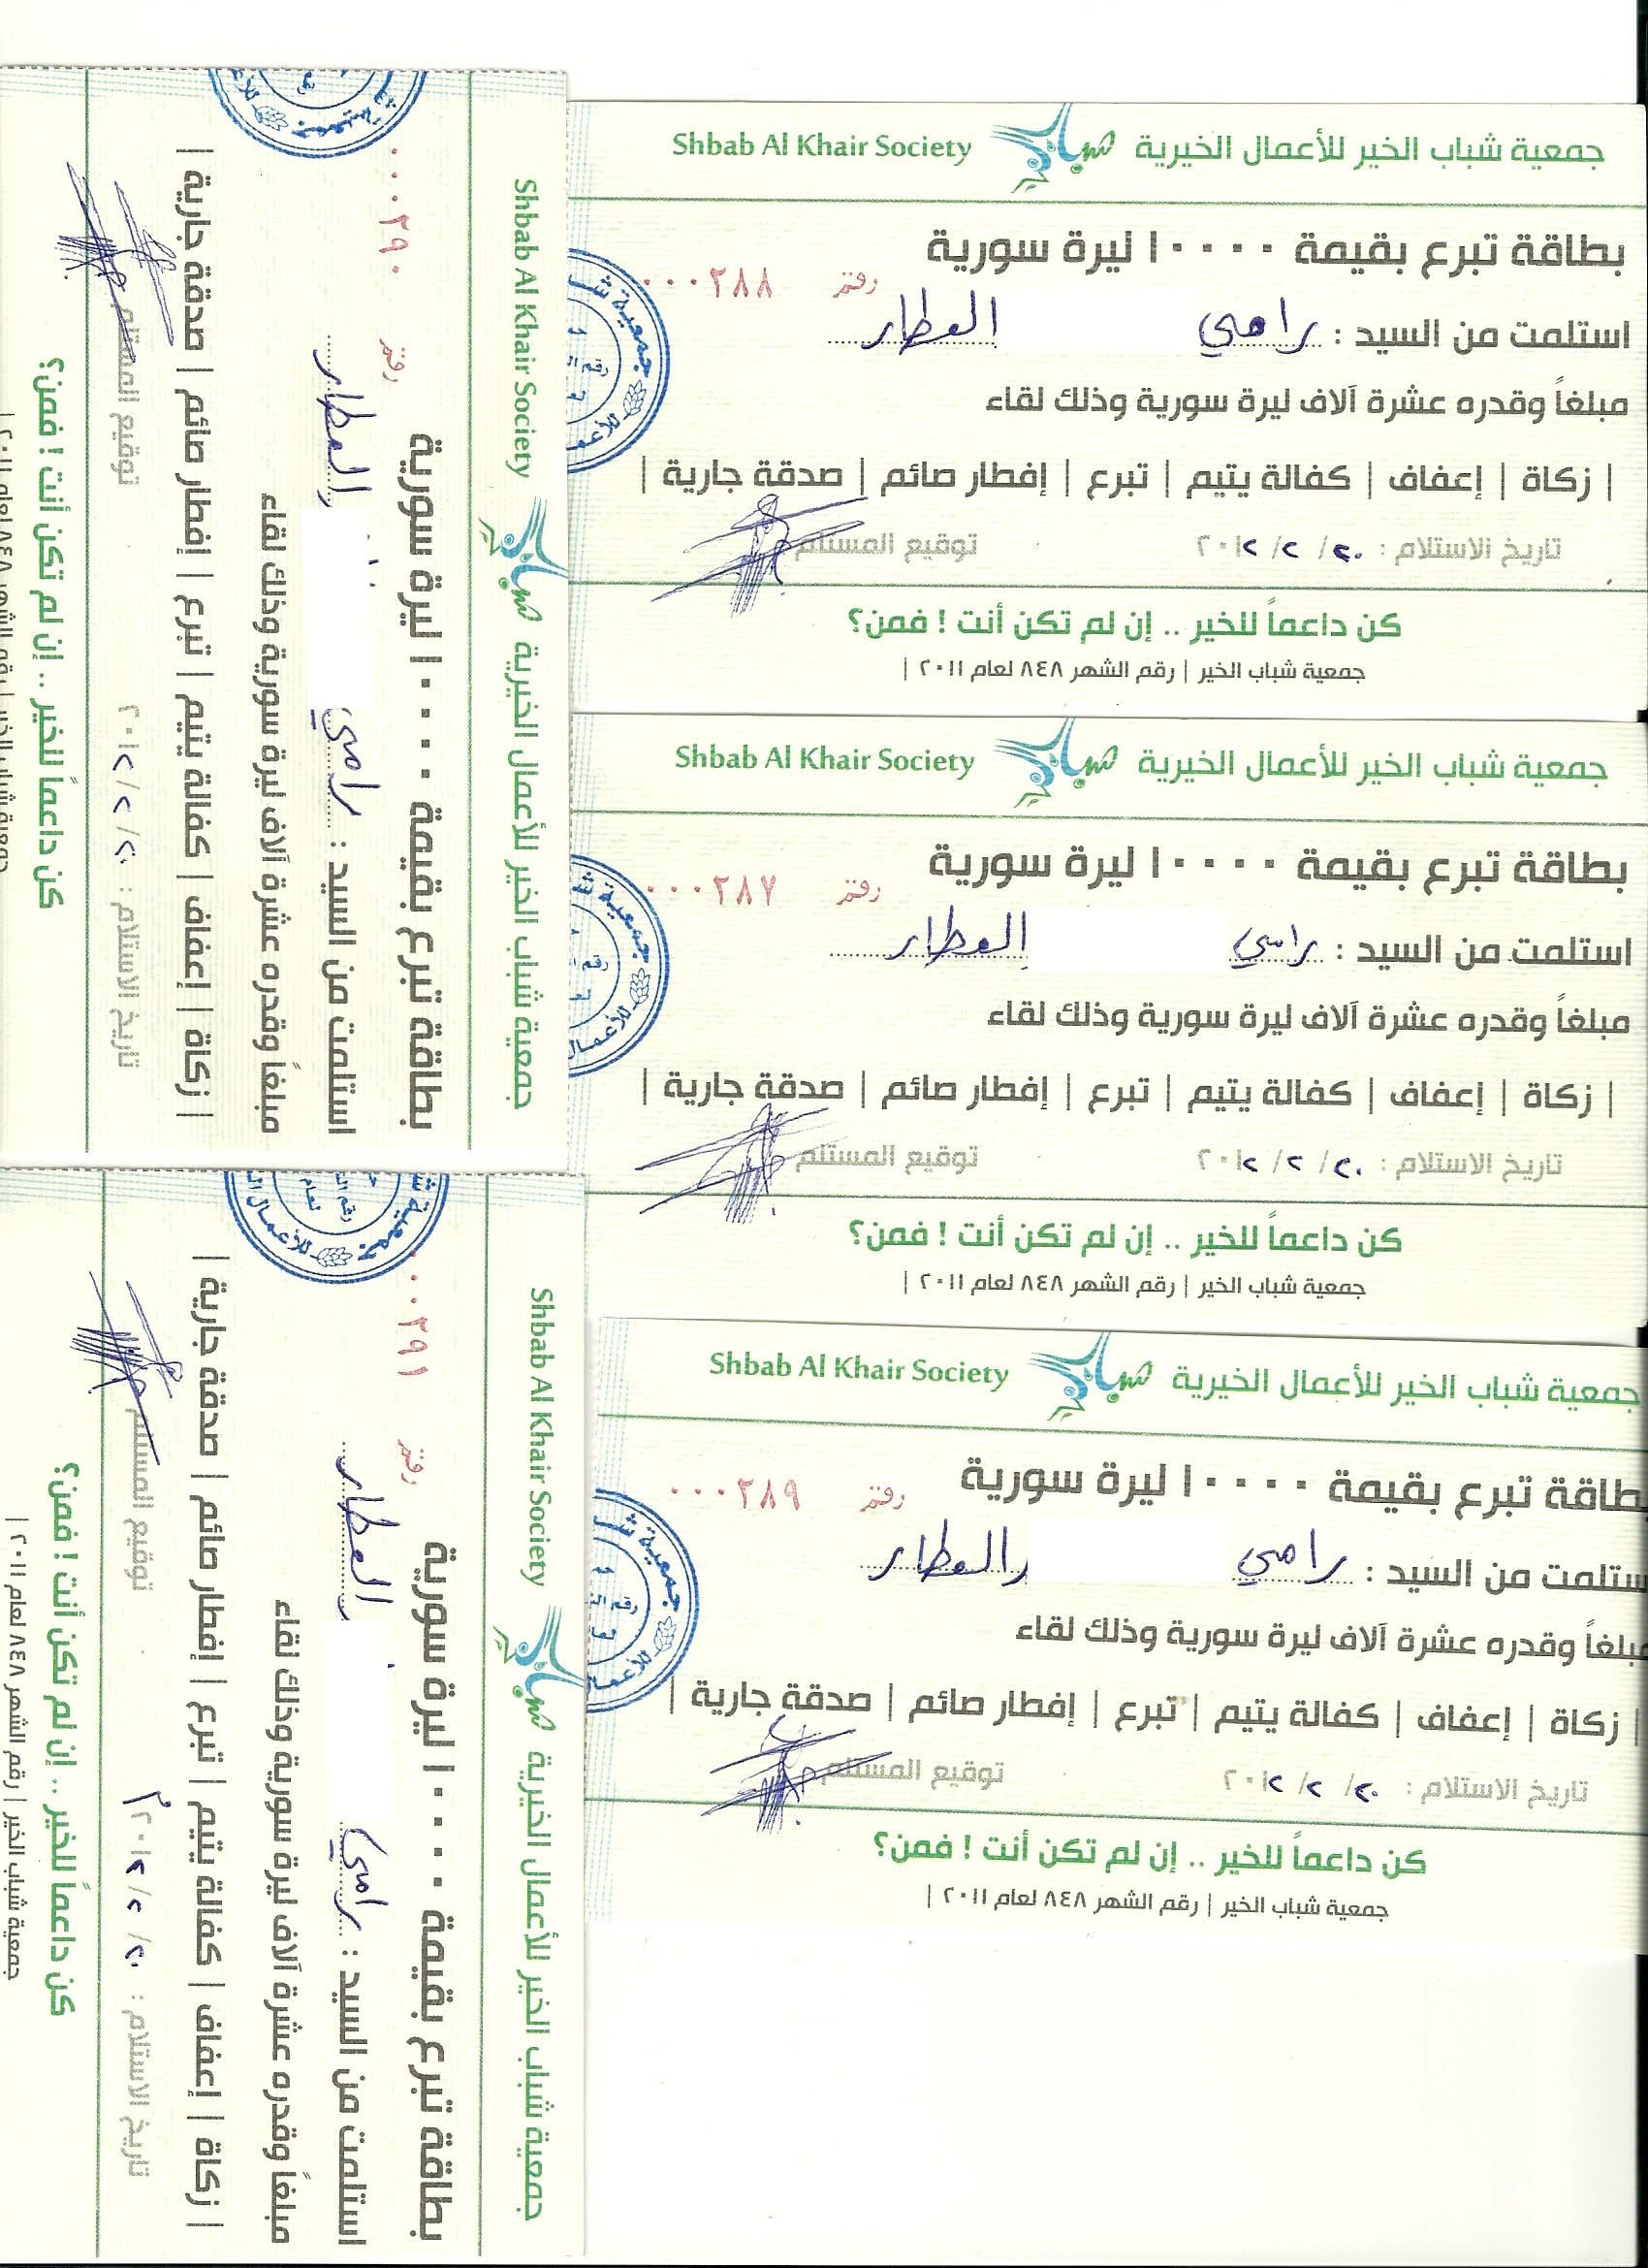 جمعية شباب الخير للأعمال الخيرية Shbab Al Khair Society
بطاقة تبرع بقيمة ١٠٠٠٠ ليرة سورية
رقم ٠٠٠٢٨٨
استلمت من السيد : رامي العطار
مبلغاً وقدره عشرة آلاف ليرة سورية وذلك لقاء
| زكاة | إعفاف | كفالة يتيم | تبرع | إفطار صائم | صدقة جارية |
تاريخ الاستلام : ٢٠ / ٢ / ٢٠١٢ توقيع المستلم
كن داعماً للخير .. إن لم تكن أنت ! فمن؟
جمعية شباب الخير | رقم الشهر ٨٤٨ لعام ٢٠١١ |
جمعية شباب الخير للأعمال الخيرية Shbab Al Khair Society
بطاقة تبرع بقيمة ١٠٠٠٠ ليرة سورية
رقم ٠٠٠٢٨٧
استلمت من السيد : رامي العطار
مبلغاً وقدره عشرة آلاف ليرة سورية وذلك لقاء
| زكاة | إعفاف | كفالة يتيم | تبرع | إفطار صائم | صدقة جارية |
تاريخ الاستلام : ٢٠ / ٢ / ٢٠١٢ توقيع المستلم
كن داعماً للخير .. إن لم تكن أنت ! فمن؟
جمعية شباب الخير | رقم الشهر ٨٤٨ لعام ٢٠١١ |
جمعية شباب الخير للأعمال الخيرية Shbab Al Khair Society
طاقة تبرع بقيمة ١٠٠٠٠ ليرة سورية
رقم ٠٠٠٢٨٩
ستلمت من السيد : رامي العطار
مبلغاً وقدره عشرة آلاف ليرة سورية وذلك لقاء
| زكاة | إعفاف | كفالة يتيم | تبرع | إفطار صائم | صدقة جارية |
تاريخ الاستلام : ٢٠ / ٢ / ٢٠١٢ توقيع المستلم
كن داعماً للخير .. إن لم تكن أنت ! فمن؟
جمعية شباب الخير | رقم الشهر ٨٤٨ لعام ٢٠١١ |
جمعية شباب الخير للأعمال الخيرية Shbab Al Khair Society
بطاقة تبرع بقيمة ١٠٠٠٠ ليرة سورية
رقم ٠٠٠٢٩٠
استلمت من السيد : رامي العطار
مبلغاً وقدره عشرة آلاف ليرة سورية وذلك لقاء
| زكاة | إعفاف | كفالة يتيم | تبرع | إفطار صائم | صدقة جارية |
تاريخ الاستلام : ٢٠ / ٢ / ٢٠١٢ توقيع المستلم
كن داعماً للخير .. إن لم تكن أنت ! فمن؟
جمعية شباب الخير للأعمال الخيرية Shbab Al Khair Society
بطاقة تبرع بقيمة ١٠٠٠٠ ليرة سورية
رقم ٠٠٢٩١
استلمت من السيد : رامي العطار
مبلغاً وقدره عشرة آلاف ليرة سورية وذلك لقاء
| زكاة | إعفاف | كفالة يتيم | تبرع | إفطار صائم | صدقة جارية |
تاريخ الاستلام : ٢٠ / ٢ / ٢٠١٢ م توقيع المستلم
كن داعماً للخير .. إن لم تكن أنت ! فمن؟
جمعية شباب الخير | رقم الشهر ٨٤٨ لعام ٢٠١١ |